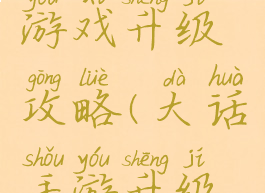 yóu xì shēng jí
游戏升级
gōng lüè dà huà
攻略(大话
shǒu yóu shēng jí
手游升级